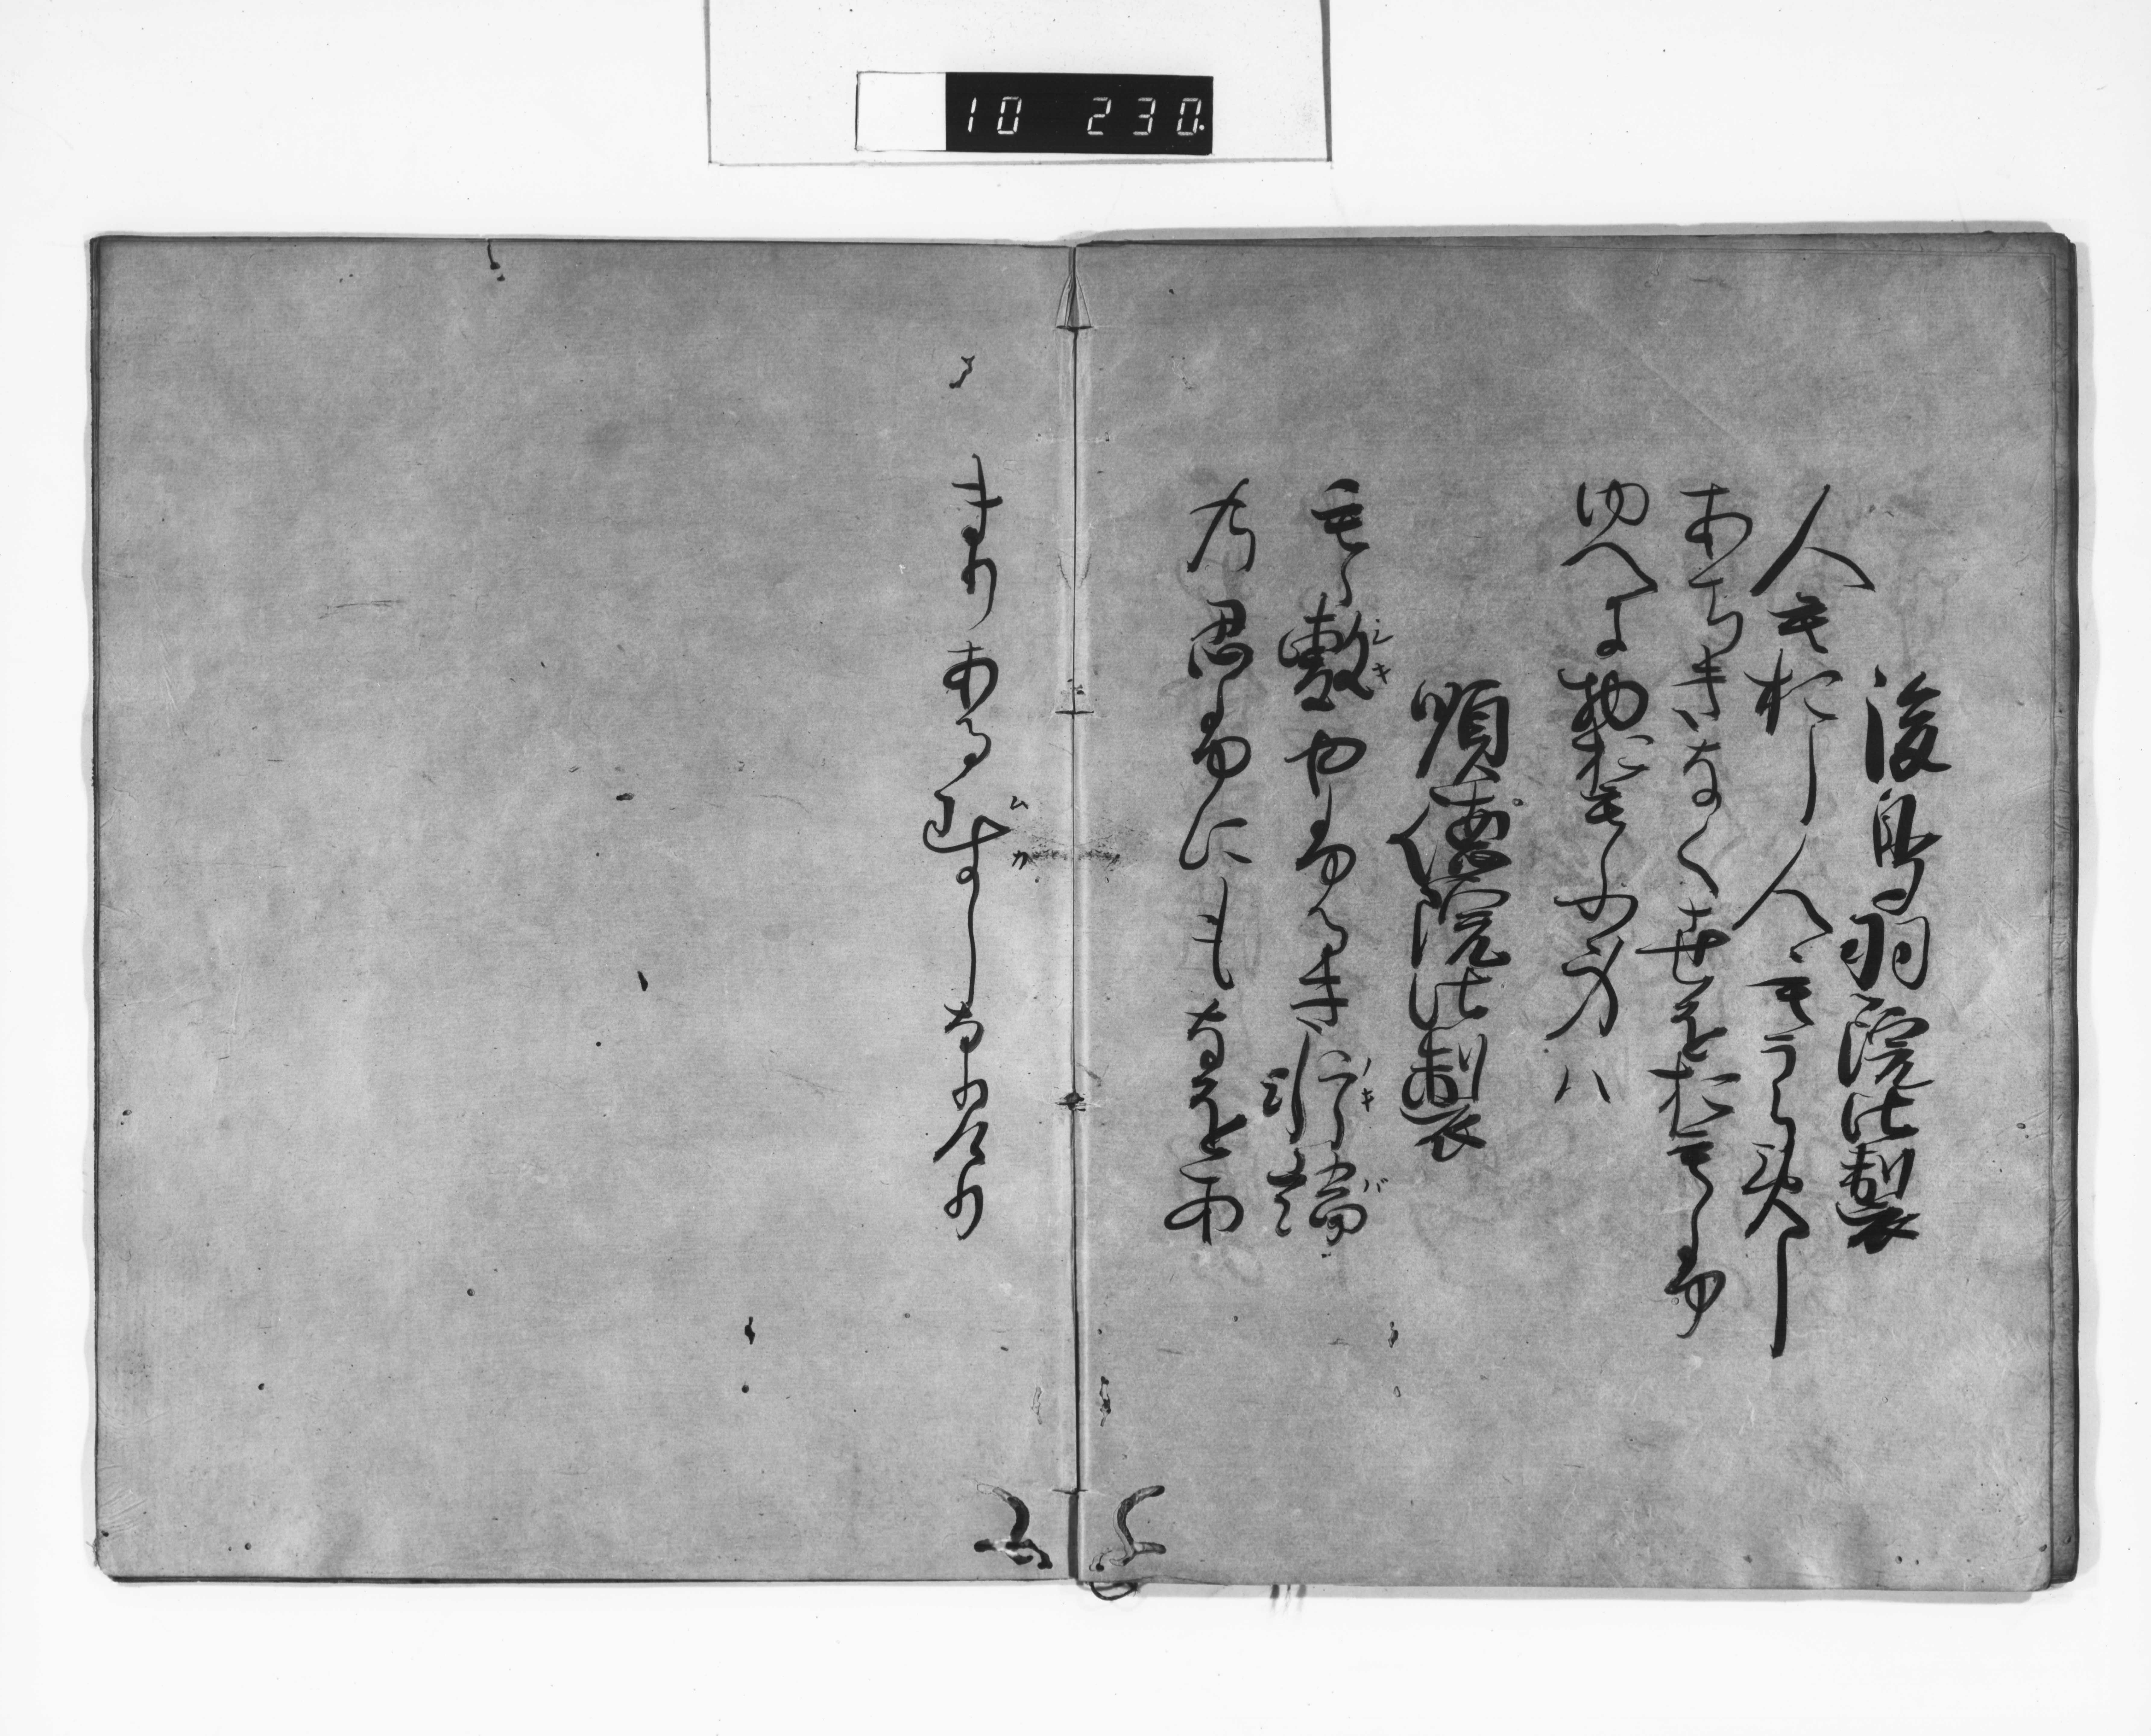 10 230
後鳥羽院御製
人もおし人もうらめし
あちきなく世をおもふ
ゆへに物おもふ身ハ
順徳院御製
百敷やふるき軒端
シキ
ノキバ
の忍ふにもなをあ
まりあるむかしなりけり
ムカ